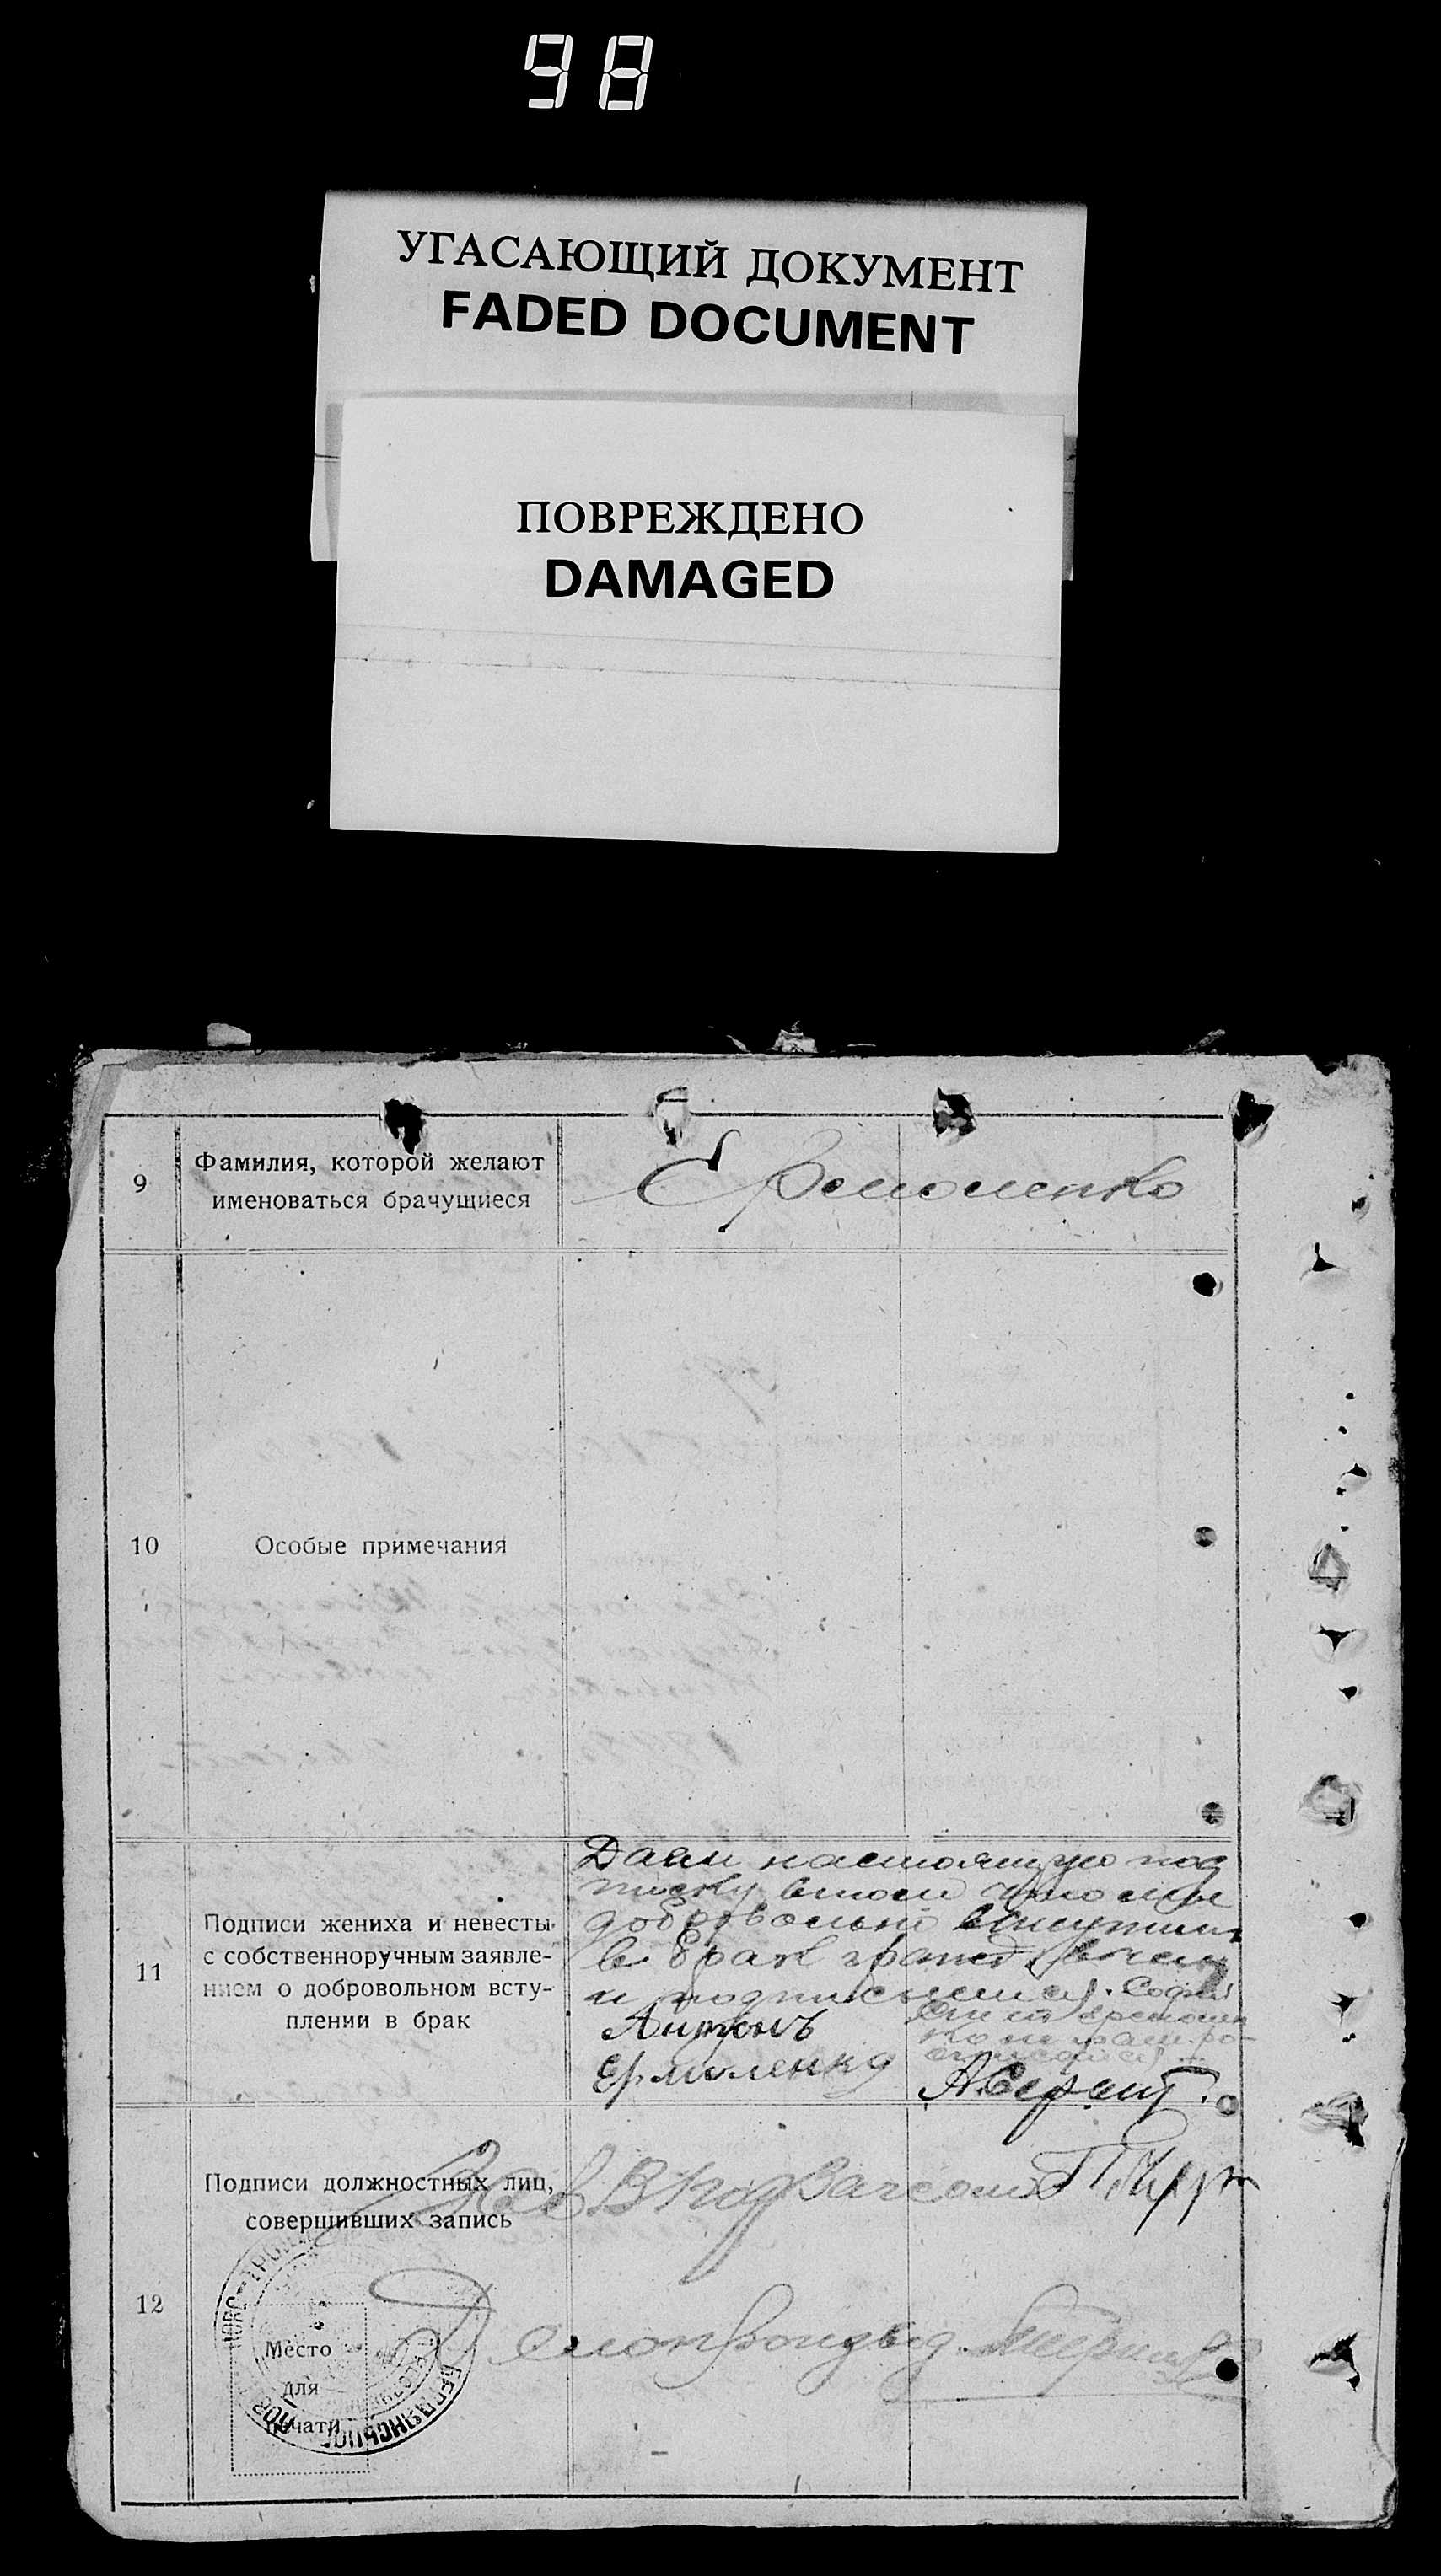 98
УГАСАЮЩИЙ ДОКУМЕНТ
FADED DOCUMENT
ПОВРЕЖДЕНО
DAMAGED
9
Фамилия, которой желают
именоваться брачущиеся
Ермоленко
10
Особые примечания
11
Подписи жениха и невесты
с собственноручным заявле-
нием о добровольном всту-
плении в брак
Даем настоящую под
писку в том что мы
добровольно вступили
в брак гражд. в чем
и подписуемся. София
Антонъ
Ермоленко
12
Подписи должностных лиц,
совершивших запись
Зав. В Под
Делопроизвод.
Место
для
печати